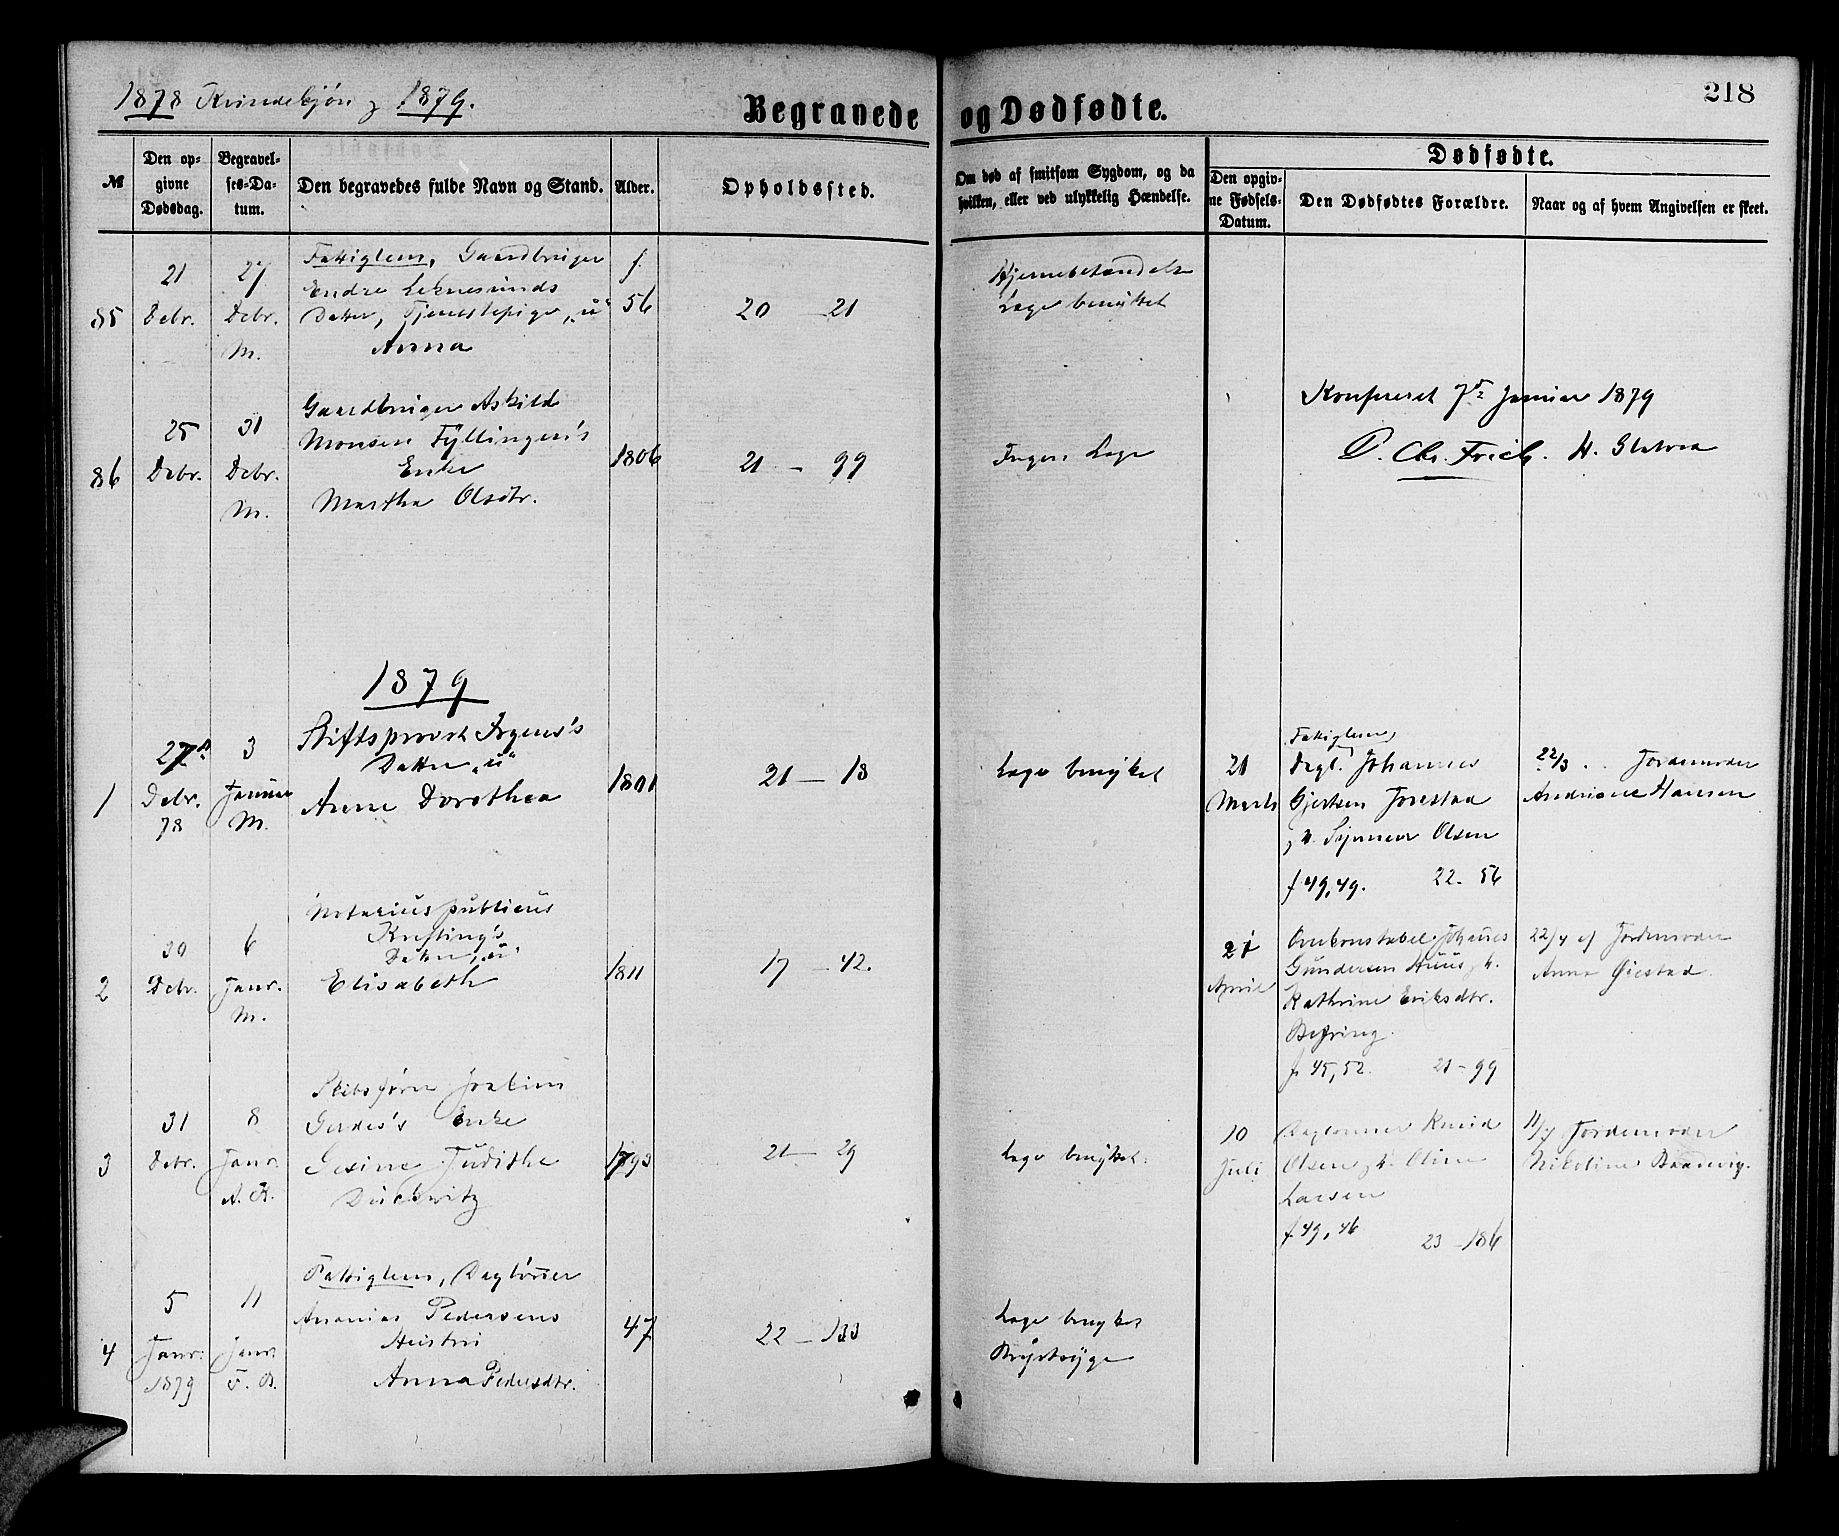 1878 Kvindekjøn og 1879.
Begravede og Dødfødte.
218
№
Den opgivne Dødsdag.
Begravelses-Datum.
Den begravedes fulde Navn og Stand.
Alder.
Opholdssted.
Om død af smitsom Sygdom, og da hvilken, eller ved ulykkelig Hændelse.
Dødfødte.
Den opgivne Fødsels-Datum.
Den Dødfødtes Forældre.
Naar og af hvem Angivelsen er skeet.
85
21
Debr.
27
Debr.
M.
Fattiglem, Gaardbruger
Endre Leknesunds
Datter, Tjenestepige, „u"
Anna
f.
56
20 21
Hjernebetændelse
Læge benyttet
86
25
Debr.
31
Debr.
M.
Gaardbruger Askild
Monsen Fyllingen's
Enke
Martha Olsdtr.
1806
21 — 99
Ingen Læge
Konfereret 7de Januar 1879
D. Chr. Frich.
1879
1
27de
Debr.
78
3
Januar
M.
Stiftsprovst Irgens's
Datter „u"
Anne Dorothea
1801
21 — 18
Læge benyttet
2
30
Debr.
6
Janr.
M.
Notarius publicus
Krefting's
Datter „u"
Elisabeth
1811
17 — 42.
3
31
Debr.
8
Janr.
Skibsfører Joakim
Gerdes's Enke
Gesine Juditha
Duckwitz
1793
21 — 29
Læge benyttet.
4
5
Janr.
1879
11
Janr.
Fattiglem, Daglønner
Ananias Pedersens
Hustru
Anna Pedersdtr.
47
22 — 133
Læge benyttet
Brystsyge
21
Marts
Fattiglem,
Dagl. Johannes
Gjertsen Jorestad
f 49, 49. 22 - 56
22/3 Jordemoder
Andriane Hansen
21
April
Overkonstabel Johannes
Gundersen
Kathrine Eriksdtr.
Befring.
f. 45, 52. 21 — 99
22/4 af Jordemoder
Anna Øiestad.
10
Juli
Daglønner Knud
Olsen, h. Oline
Larsen
f 49, 46 23 — 186
11/7 Jordemoder
Nikoline